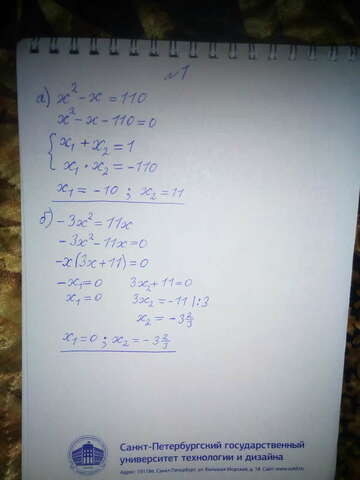 №1
а) x² - x = 110
x² - x - 110 = 0
{ x₁ + x₂ = 1
x₁ · x₂ = -110
x₁ = -10 ; x₂ = 11
б) -3x² = 11x
-3x² - 11x = 0
-x(3x + 11) = 0
-x₁ = 0 3x₂ + 11 = 0
x₁ = 0 3x₂ = -11 | :3
x₂ = -3⅔
x₁ = 0 ; x₂ = -3⅔
Санкт-Петербургский государственный
университет технологии и дизайна
Адрес: 191186, Санкт-Петербург, ул. Большая Морская, д. 18